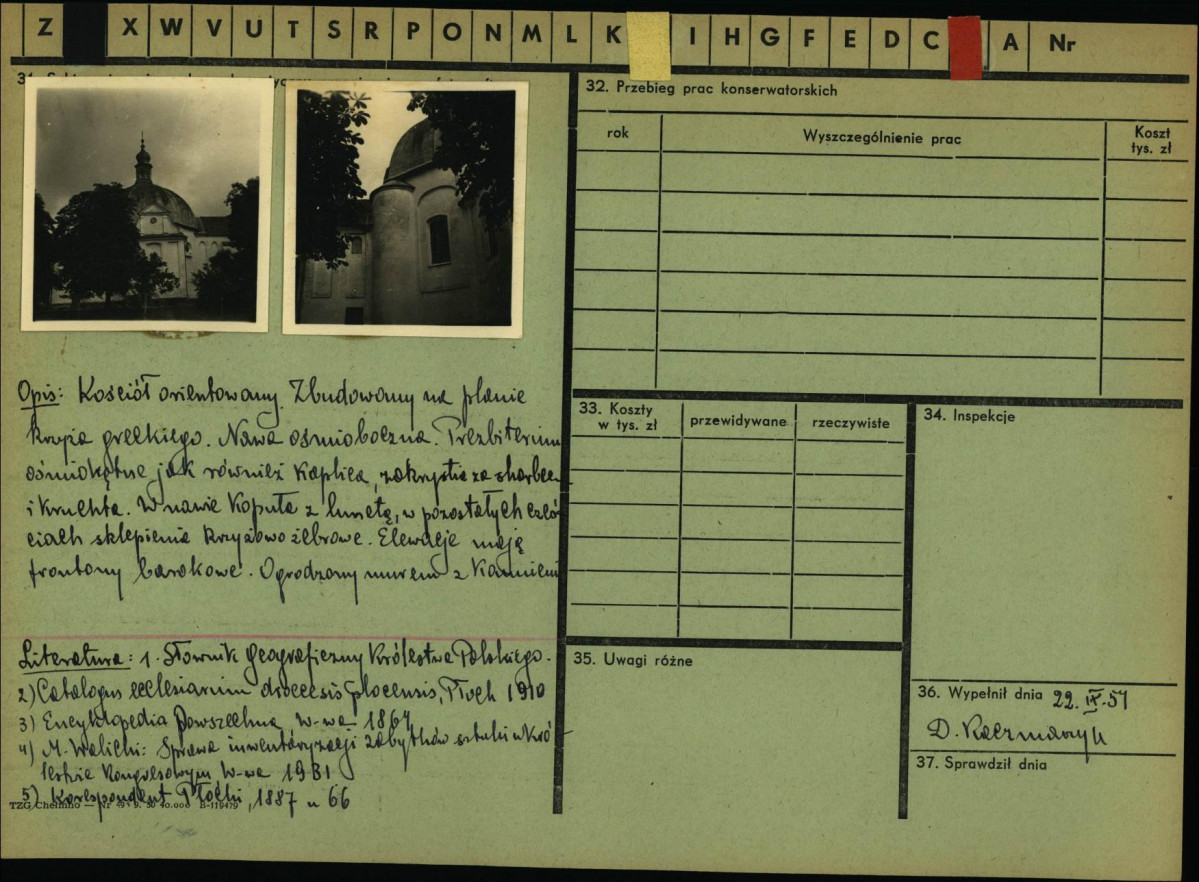 Z X W V U T S R P O N M L K I H G F E D C A Nr
31.
32. Przebieg prac konserwatorskich
rok Wyszczególnienie prac Koszt tys. zł
Opis: Kościół orientowany. Zbudowany na planie
krzyża greckiego. Nawa ośmioboczna. Prezbiterium
ośmiokątne jak również kaplica, zakrystia ze skarbcem
i kruchta. W nawie kopuła z lunetą, w pozostałych częś-
ciach sklepienia krzyżowo żebrowe. Elewacje mają
frontony barokowe. Ogrodzony murem z kamieni
Literatura: 1. Słownik geograficzny Królestwa Polskiego.
2) Catalogus ecclesiarum dioecesis plocensis, Płock 1910
3) Encyklopedia Powszechna, W-wa 1864
4) M. Walicki: Sprawa inwentaryzacji zabytków sztuki w Kró-
lestwie Kongresowym, W-wa 1931
5) Korespondent Płocki, 1887 n 66
TZG Chełmno — Nr
33. Koszty w tys. zł przewidywane rzeczywiste
34. Inspekcje
35. Uwagi różne
36. Wypełnił dnia 22. IX. 59
D. Kaczmarzyk
37. Sprawdził dnia